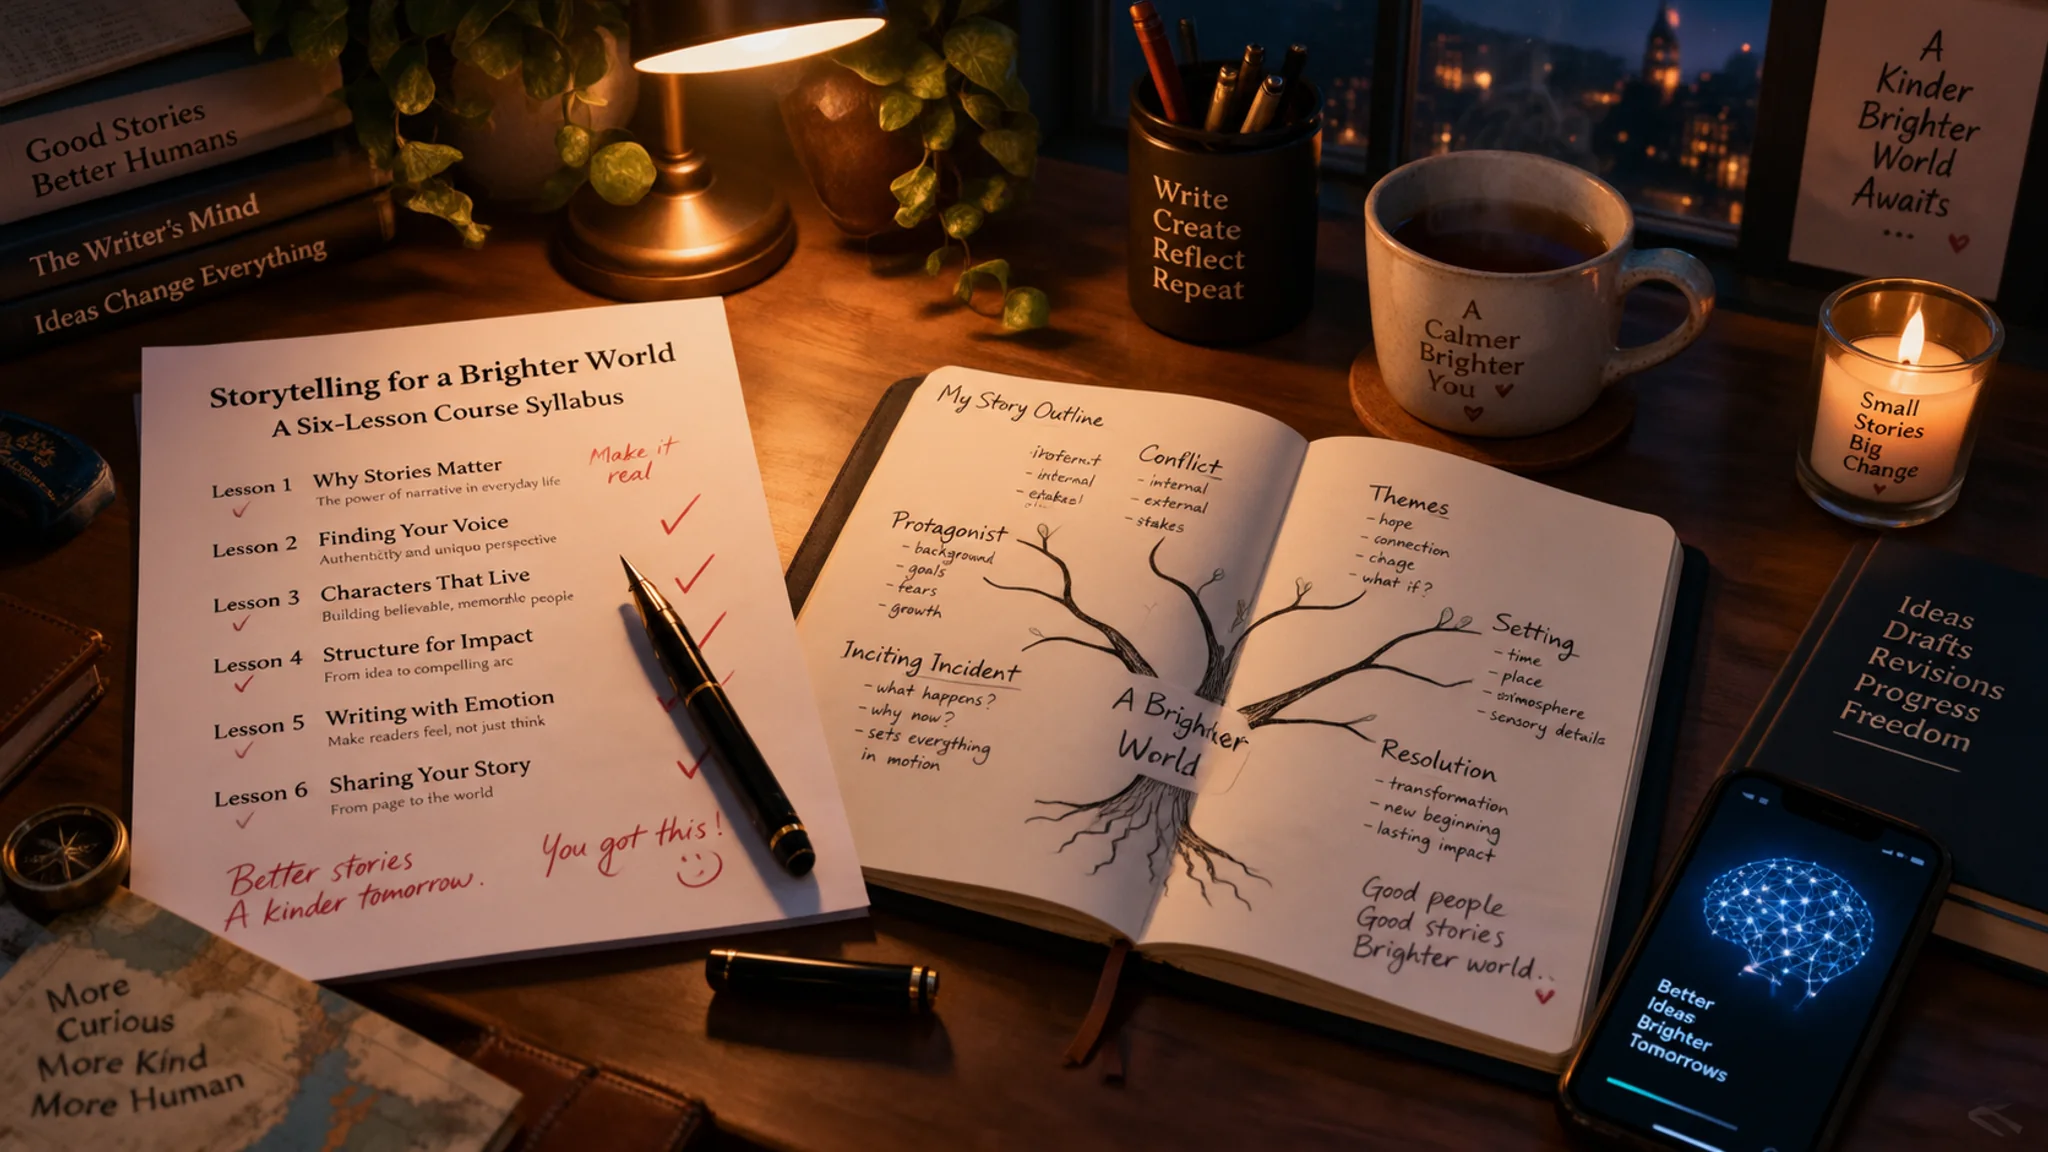 Good Stories
Better Humans
The Writer's Mind
Ideas Change Everything
Write
Create
Reflect
Repeat
A
Calmer
Brighter
You
A
Kinder
Brighter
World
Awaits
...
Small
Stories
Big
Change
Storytelling for a Brighter World
A Six-Lesson Course Syllabus
Make it
real
Lesson 1 Why Stories Matter
The power of narrative in everyday life
Lesson 2 Finding Your Voice
Authenticity and unique perspective
Lesson 3 Characters That Live
Building believable, memorable people
Lesson 4 Structure for Impact
From idea to compelling arc
Lesson 5 Writing with Emotion
Make readers feel, not just think
Lesson 6 Sharing Your Story
From page to the world
You got this!
Better stories
A kinder tomorrow.
My Story Outline
- internal
Conflict
- internal
- external
- stakes
Protagonist
- background
- goals
- fears
- growth
Inciting Incident
- what happens?
- why now?
- sets everything
in motion
A Brighter
World
Themes
- hope
- connection
- chage
- what if?
Setting
- time
- place
- sensory details
Resolution
- transformation
- new beginning
- lasting impact
Good people
Good stories
Brighter world..
Ideas
Drafts
Revisions
Progress
Freedom
Better
Ideas
Brighter
Tomorrows
More
Curious
More Kind
More Human